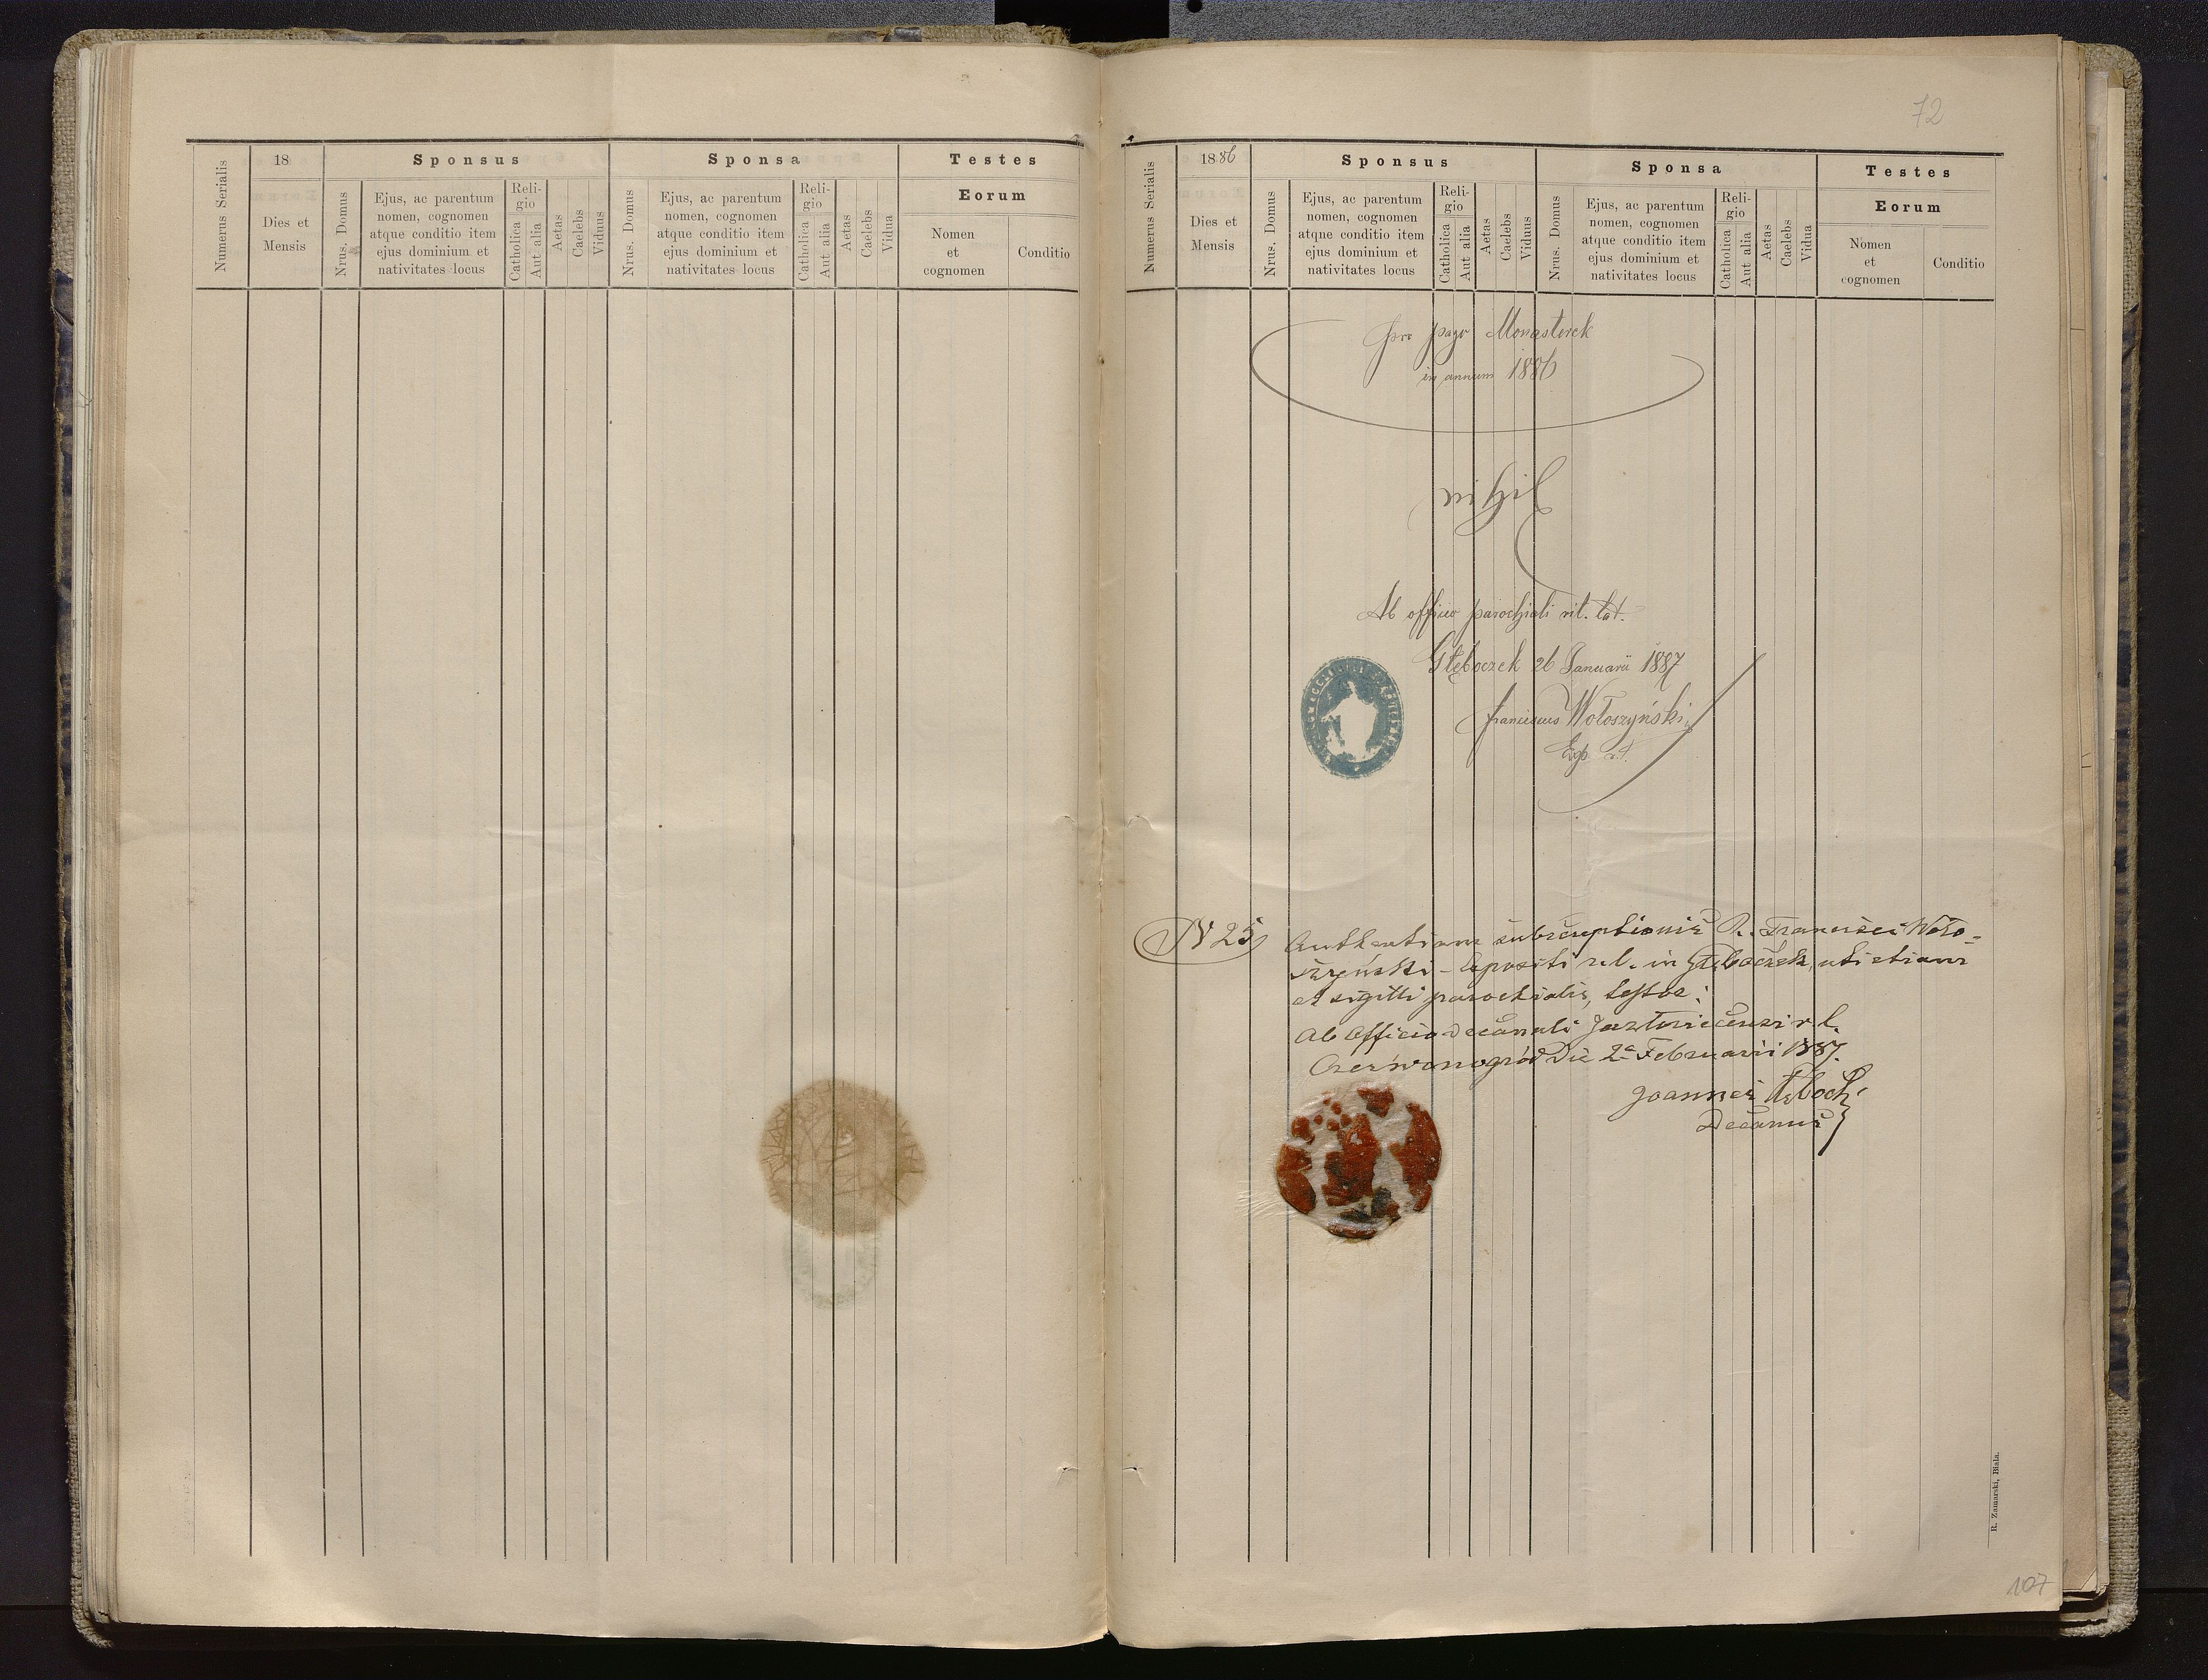 18
Sponsus
Sponsa
Testes
Numerus Serialis
Dies et
Mensis
Nrus. Domus
Ejus, ac parentum
nomen, cognomen
atque conditio item
ejus dominium et
nativitates locus
Reli-
gio
Catholica
Aut alia
Aetas
Caelebs
Viduus
Nrus. Domus
Ejus, ac parentum
nomen, cognomen
atque conditio item
ejus dominium et
nativitates locus
Reli-
gio
Catholica
Aut alia
Aetas
Caelebs
Vidua
Eorum
Nomen
et
cognomen
Conditio
72
1886
Sponsus
Sponsa
Testes
Numerus Serialis
Dies et
Mensis
Nrus. Domus
Ejus, ac parentum
nomen, cognomen
atque conditio item
ejus dominium et
nativitates locus
Reli-
gio
Catholica
Aut alia
Aetas
Caelebs
Viduus
Nrus. Domus
Ejus, ac parentum
nomen, cognomen
atque conditio item
ejus dominium et
nativitates locus
Reli-
gio
Catholica
Aut alia
Aetas
Caelebs
Vidua
Eorum
Nomen
et
cognomen
Conditio
pro pago Monasterek
in annum 1886
nihil
Ab officio parochiali rit. lat.
Głęboczek 26 Januarii 1887
Franciscus Wołoszyński
Exp. r.l.
N 25
Authentiam subscriptionis R. Francisci Woło-
szyński - Expositi r.l. in Głęboczek, uti etiam
et sigilli parochialis, testor:
Ab Officio Decanali Jazłoviecensi r.l.
Czerwonogród Die 2a Februarii 1887.
Joannes
Decanus
R. Zamarski, Biala.
107